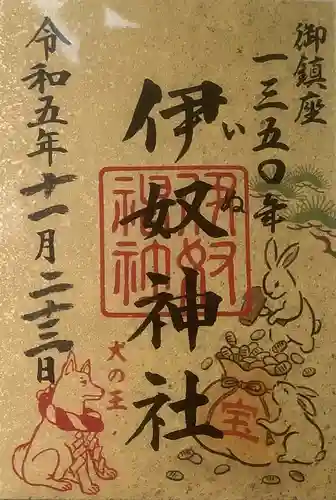 御鎮座
一三五〇年
伊奴神社
いぬ
伊奴神社
令和五年十一月二十三日
犬の王
宝